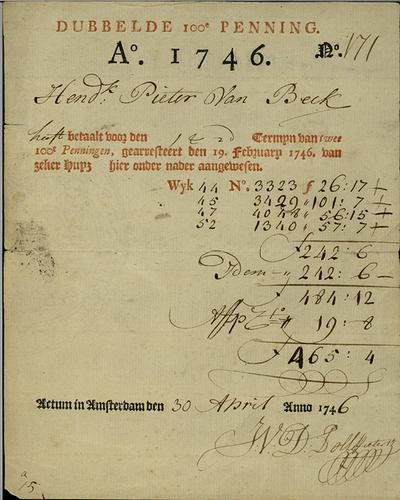 DUBBELDE 100e PENNING.
Ao. 1746. No. 171
Hendk: Pieter Van Beck
heeft betaalt voor den 1 & 2d Termyn van twee
100e Penningen, gearresteert den 19. February 1746. van
zeker Huyz hier onder nader aangewesen.
Wyk 44 No. 3323 f 26:17
45 3429 " 101: 7
47 4048 " 56:15
52 1340 " 57: 7
f 242: 6
Idem 242: 6
484:12
19: 8
f 465: 4
Actum in Amsterdam den 30 April Anno 1746
15